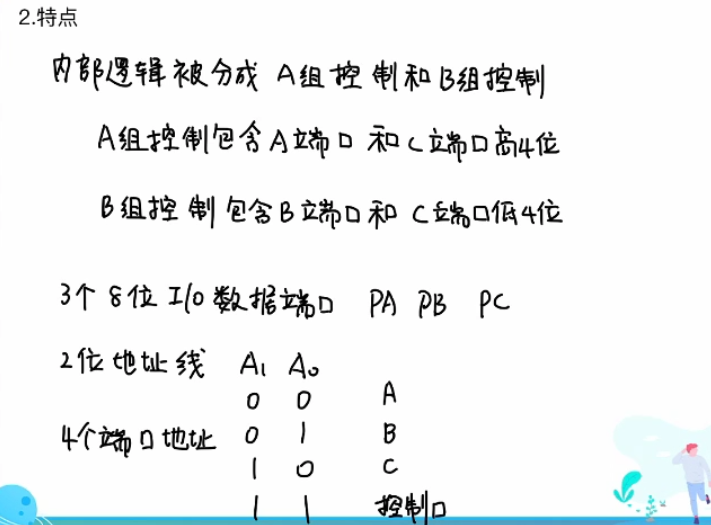 2.特点
内部逻辑被分成 A组控制和B组控制
A组控制包含A端口和C端口高4位
B组控制包含B端口和C端口低4位
3个8位I/O数据端口 PA PB PC
2位地址线 A₁ A₀
0 0 A
4个端口地址 0 1 B
1 0 C
1 1 控制口